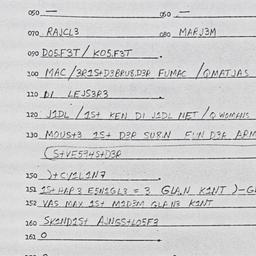 050 — 060 —
070 RAJCL3 080 MARJ3M
090 DOS.F3T / KOS.F3T
100 MAC /3R1S+D3BRU8.D3R FUMAC /QMATJAS
110 DI LEJS3R3
120 J1DL / 1S+ KEN DI J1DL NET / Q WOMANS
130 MOUS+3 1S+ D3R SU8.N FUN D3R ARM
(S+VES94S+D3R
150 )+CY1L1N7
151 1S+ HAR3 ESN1GL3 = 3 GLA.N K1NT )-GL
152 VAS MAX 1S+ M1D3M GLAN3 K1NT
160 SK1ND1S+ AJNGS+LO5F3
161 0